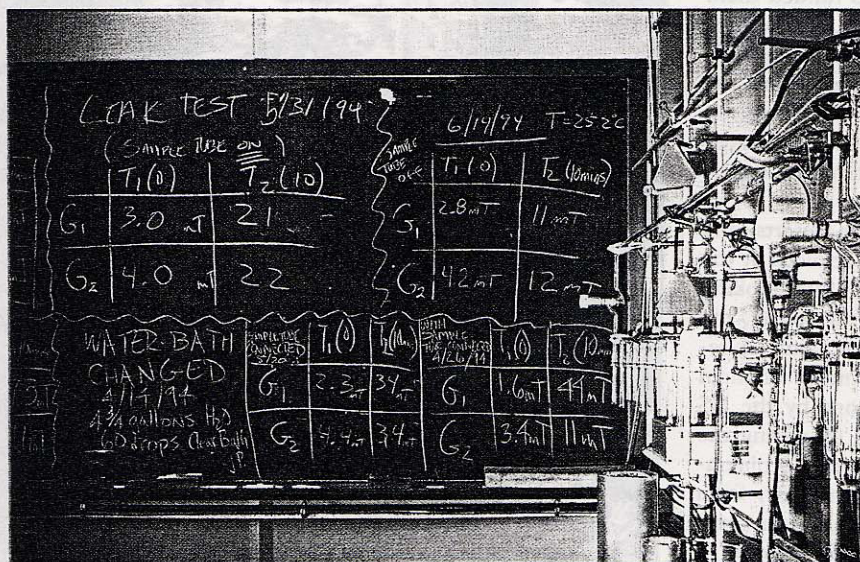 LEAK TEST 5/31/94
(SAMPLE TUBE ON)
T1(0) T2(10)
G1 3.0 mT 21
G2 4.0 mT 22
6/14/94 T=25.2°C
SAMPLE
TUBE
OFF
T1(0) T2(10mins)
G1 2.8mT 11mT
G2 42mT 12mT
WATER BATH
CHANGED
4/14/94
4 3/4 gallons H2O
60 drops Clear Bath
SAMPLE TUBE
CONNECTED
T1(0) T2(10
G1 2.3mT 34mT
G2 4.4mT 34mT
WITH
SAMPLE
TUBE
4/26/94
T1(0) T2(10
G1 1.6mT 44mT
G2 3.4mT 11mT